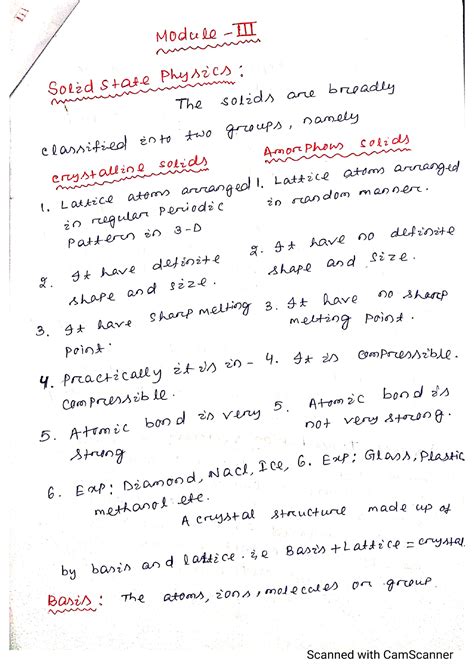 Module - III
Solid State Physics :
The solids are broadly
classified into two groups, namely
crystalline solids
1. Lattice atoms arranged
in regular periodic
pattern in 3-D
2. It have definite
shape and size.
3. It have sharp melting
point.
4. Practically it is in-
compressible.
5. Atomic bond is very
strong
6. Exp: Diamond, Nacl, Ice,
methanol etc.
Amorphous solids
1. Lattice atoms arranged
in random manner.
2. It have no definite
shape and size.
3. It have no sharp
melting point.
4. It is compressible.
5. Atomic bond is
not very strong.
6. Exp: Glass, Plastic
A crystal structure made up of
by basis and lattice. i,e Basis + Lattice = crystal
Basis : The atoms, ions, molecules or group.
Scanned with CamScanner